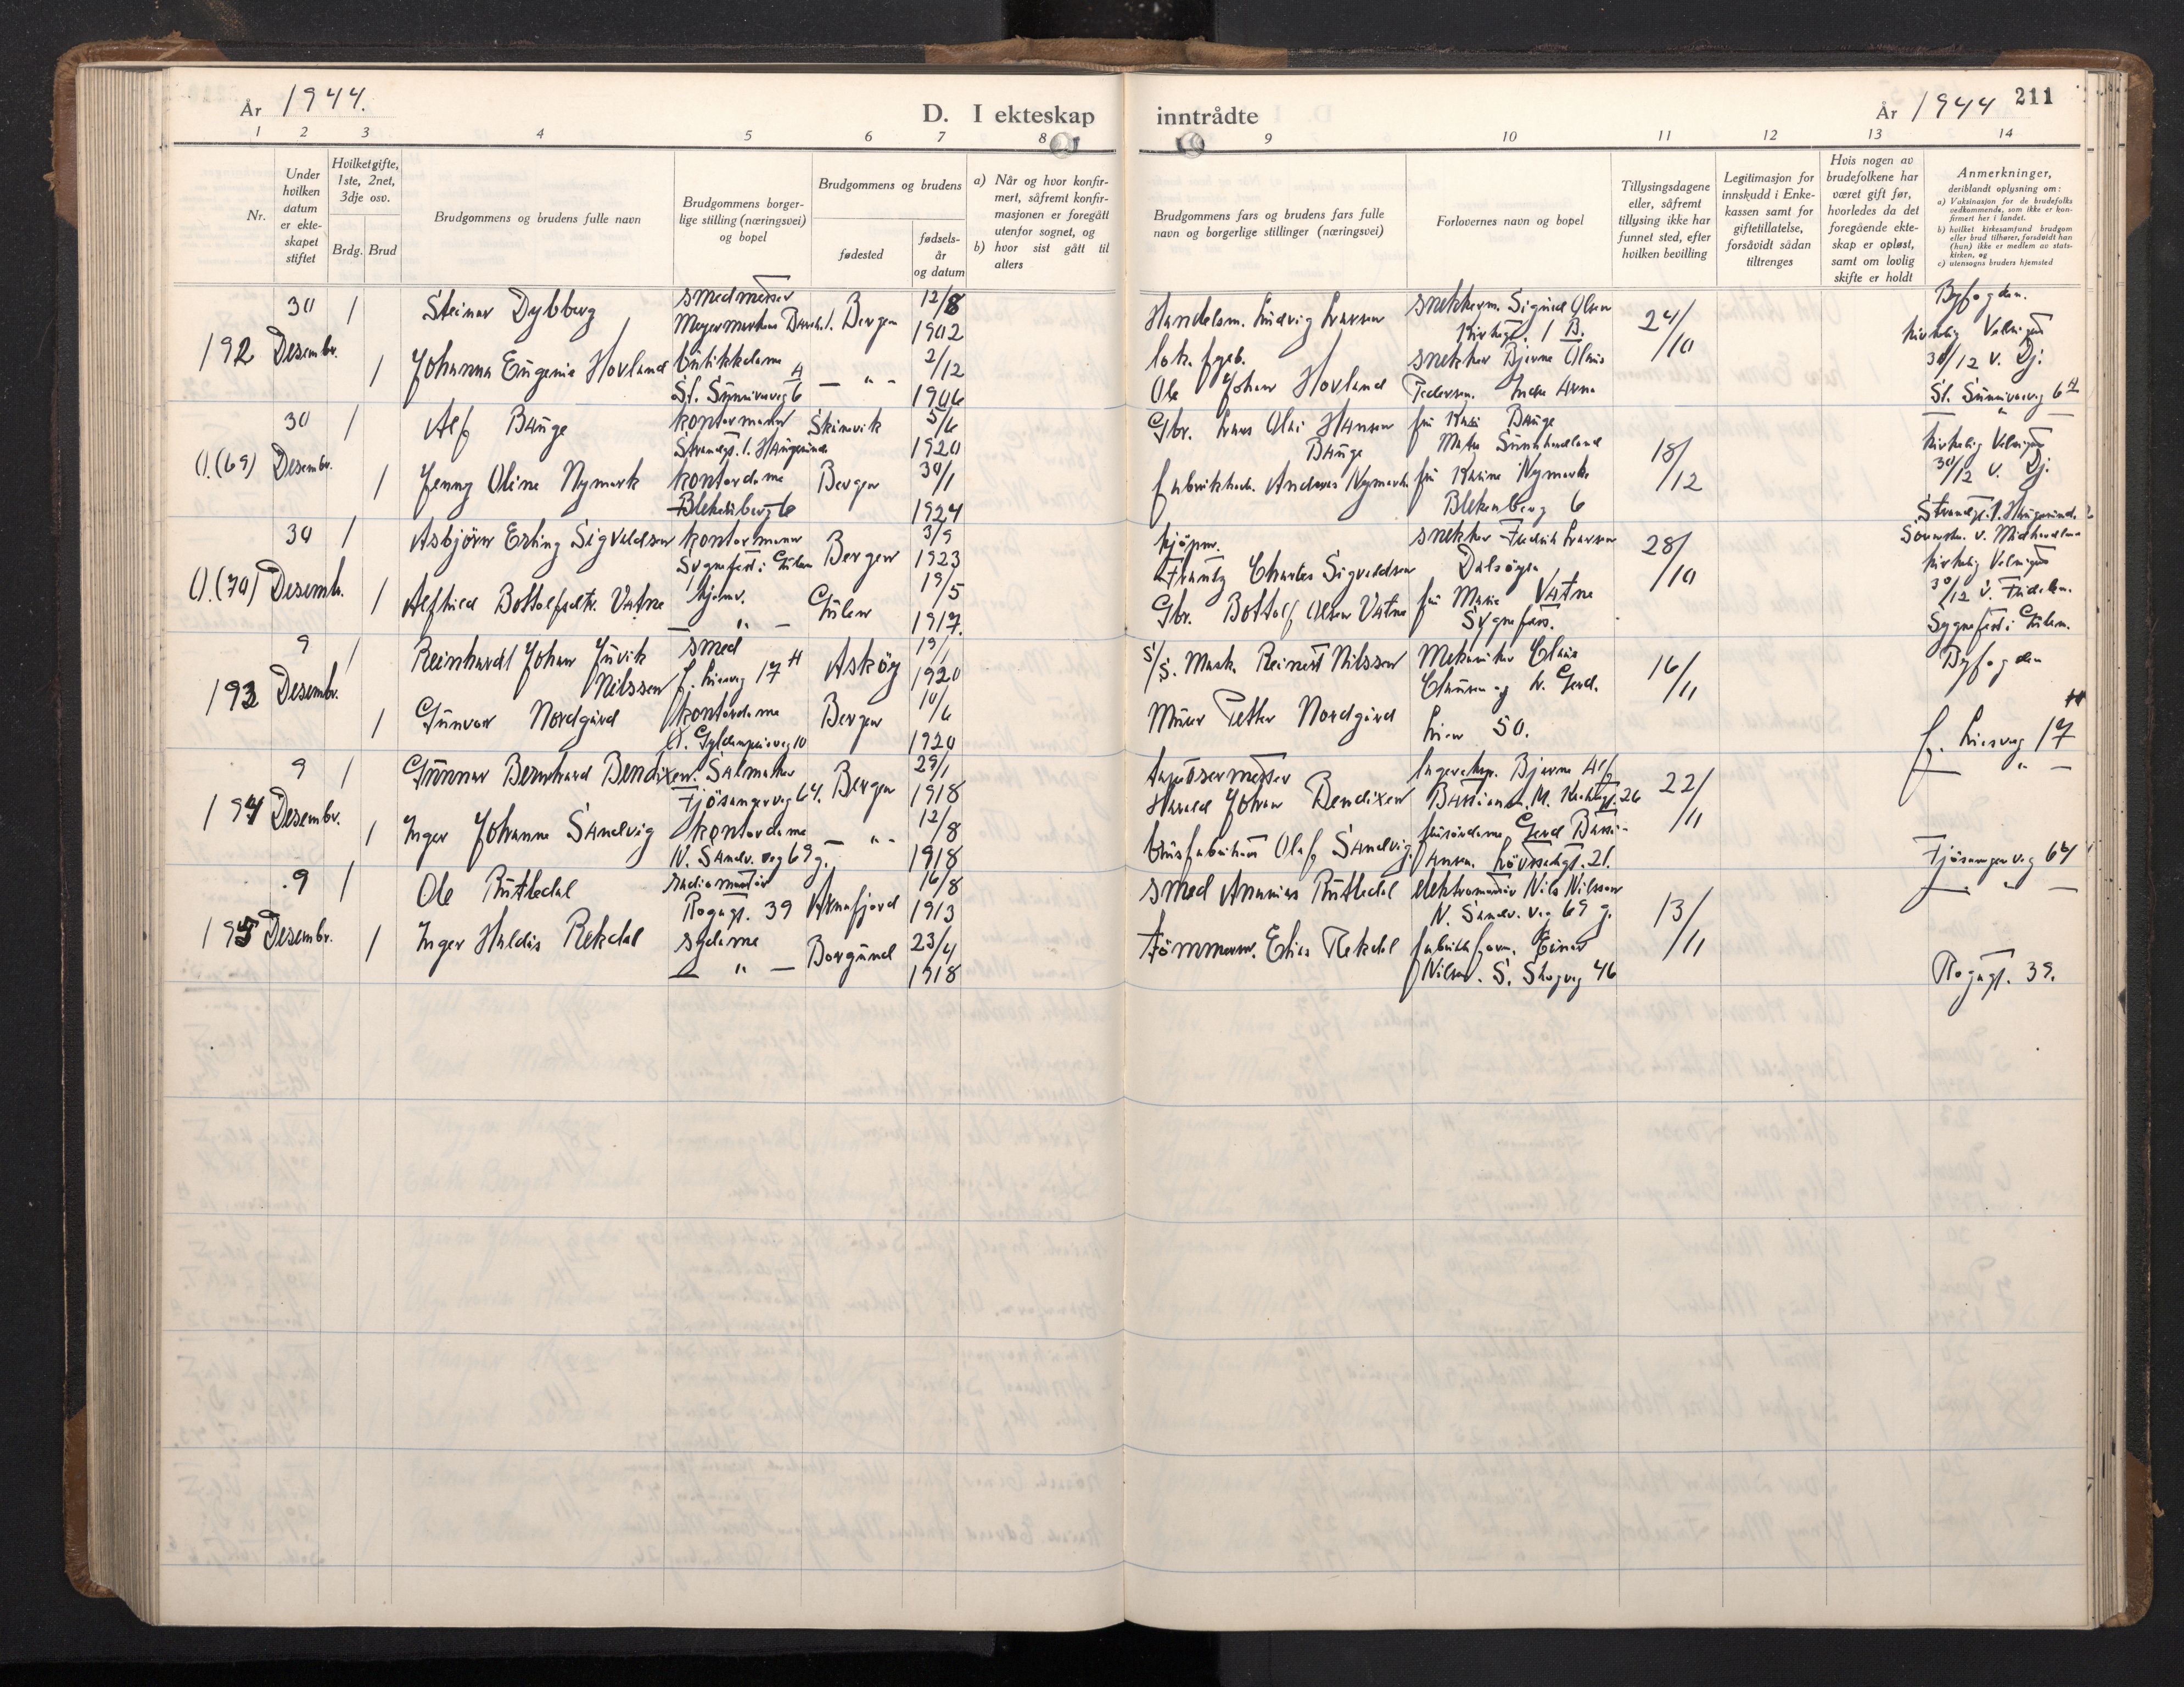 År 1944.
D. I ekteskap
1 2 3 4 5 6 7 8
Nr.
Under
hvilken
datum
er ekte-
skapet
stiftet
Hvilketgifte,
1ste, 2net,
3dje osv.
Brdg. Brud
Brudgommens og brudens fulle navn
Brudgommens borger-
lige stilling (næringsvei)
og bopel
Brudgommens og brudens
fødested
fødsels-
år
og datum
a) Når og hvor konfir-
mert, såfremt konfir-
masjonen er foregått
utenfor sognet, og
b) hvor sist gått til
alters
192
30
Desembr.
1
Steinar Dybberg
smedmester
Bergen
12/8
1902
1
Johanna Eugenie Hovland
butikkdame
St. Sunnivaveg 6 A
— " —
2/12
1906
O. (69)
30
Desembr.
1
Alf Bauge
kontormann
Strandgt. 1. Haugesund
Skånevik
5/6
1920
1
Jenny Oline Nymark
kontordame
Blekenberg 6
Bergen
30/1
1924
O. (70)
30
Desemb.
1
Asbjörn Erling Sigvaldsen
kontormann
Sygnefest i Gulen
Bergen
3/9
1923
1
Alfhild Bottolfsdtr. Vatne
hjemv.
— " —
Gulen
19/5
1917.
193
9
Desembr.
1
Reinhardt Johan Juvik
Nilssen
smed
f. Liesveg 17 H
Asköy
19/1
1920
1
Gunvor Nordgård
kontordame
O. Gyldenprisveg 10
Bergen
10/6
1920
194
9
Desembr.
1
Gunnar Bernhard Bendixen.
Salmaker
Fjösangerveg 64.
Bergen
29/1
1918
1
Inger Johanne Sandvig
kontordame
N. Sandv. veg 69 g.
— " —
12/8
1918
195
9
Desembr.
1
Ole Rutledal
radiomontör
Rogagt. 39
Arnafjord
16/8
1913
1
Inger Haldis Rekdal
sydame
— " —
Borgund
23/4
1918
inntrådte
År 1944 211
9 10 11 12 13 14
Brudgommens fars og brudens fars fulle
navn og borgerlige stillinger (næringsvei)
Forlovernes navn og bopel
Tillysingsdagene
eller, såfremt
tillysing ikke har
funnet sted, efter
hvilken bevilling
Legitimasjon for
innskudd i Enke-
kassen samt for
giftetillatelse,
forsåvidt sådan
tiltrenges
Hvis nogen av
brudefolkene har
været gift før,
hvorledes da det
foregående ekte-
skap er opløst,
samt om lovlig
skifte er holdt
Anmerkninger,
deriblandt oplysning om:
a) Vaksinasjon for de brudefolks
vedkommende, som ikke er kon-
firmert her i landet.
b) hvilket kirkesamfund brudgom
eller brud tilhører, forsåvidt han
(hun) ikke er medlem av stats-
kirken, og
c) utensogns bruders hjemsted
Handelsm. Ludvig Larsen
snekkerm. Sigurd Olsen
Kirkegt. 1 B.
24/10
Byfogden.
Kirkelig Velsignet
30/12 v. Dj.
St. Sunnivaveg 6 A
Ole Johan Hovland
snekker Bjarne Olaus
Pedersen. Indre Arna
Gbr. Lars Olai Hansen
Bauge
fru Kari Bauge
Matre Sunnhordland
18/12
— " —
Kirkelig Velsignet
30/12 v. Dj.
Strandgt. 1. Haugesund.
fabrikkarb. Andreas Nymark
fru Karine Nymark
Blekenberg 6
kjöpm.
Frantz Charles Sigvaldsen
snekker Fredrik Larsen
Dalsöyra
28/10
Kirkelig Velsignet
30/12 v.
Sygnefest i Gulen.
Gbr. Bottolf Olsen Vatne
fru Marie Vatne
Sygnefest.
S/S. Mask. Reinert Nilssen
Mekaniker Claus
Clausen og h. Gerd.
Lien 50.
16/11
Byfogden
f. Liesveg 17 H
Murer Petter Nordgård
tapetserermester
Harald Johan Bendixen
lagereksp. Bjarne Alf
Bastiansen. M. Kirkegt. 26
22/11
— " —
Fjösangerveg 64
Olaf Sandvig.
frisördame Gerd Basti-
ansen. Lövstakgt. 21.
smed Ananias Rutledal
elektromontör Nils Nilssen
N. Sandv. veg 69 g.
13/11
— " —
Rogagt. 39.
tömmerm. Elias Rekdal
fabrikkform. Einar
Nilsen. S. Skogveg 46